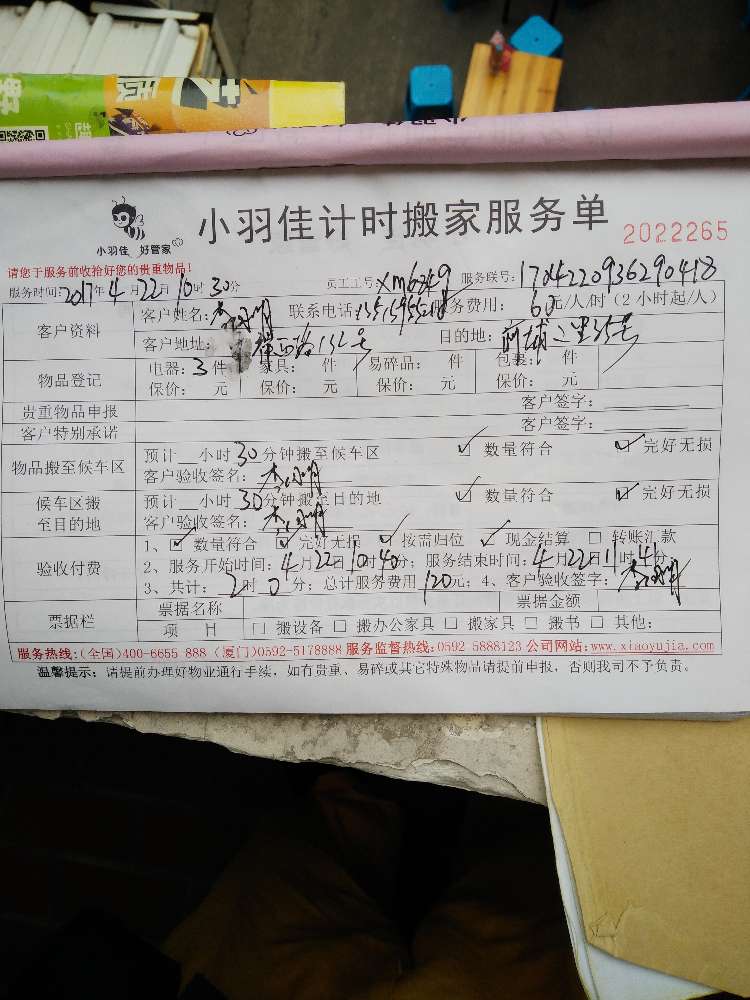 小羽佳 好管家
小羽佳计时搬家服务单
2022265
请您于服务前收拾好您的贵重物品!
服务时间:2017年4月22日10时30分 员工工号:xm6249 服务联号:1704220936290418
客户资料 客户姓名: 联系电话: 服务费用:60元/人/时(2小时起/人)
客户地址: 132号 目的地: 35号
物品登记 电器:3件 家具: 件 易碎品: 件 包裹: 件
保价: 元 保价: 元 保价: 元 保价: 元
贵重物品申报 客户签字:
客户特别承诺 客户签字:
物品搬至候车区 预计 小时30分钟搬至候车区 ☑ 数量符合 ☑ 完好无损
客户验收签名:
候车区搬至目的地 预计 小时30分钟搬至目的地 ☑ 数量符合 ☑ 完好无损
客户验收签名:
验收付费 1、☑ 数量符合 ☑ 完好无损 ☑ 按需归位 ☑ 现金结算 □ 转账汇款
2、服务开始时间:4月22日10时40分;服务结束时间:4月22日11时41分;
3、共计:2时0分;总计服务费用120元;4、客户验收签字:
票据栏 票据名称 票据金额
项 目 □ 搬设备 □ 搬办公家具 □ 搬家具 □ 搬书 □ 其他:
服务热线:(全国)400-6655 888 (厦门)0592-5178888 服务监督热线:0592 5888123 公司网站:www.xiaoyujia.com
温馨提示:请提前办理好物业通行手续,如有贵重、易碎或其它特殊物品请提前申报,否则我司不予负责。